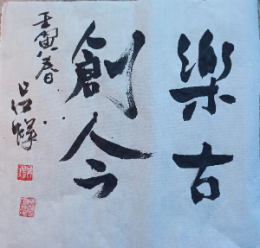 樂古
創今
壬寅春